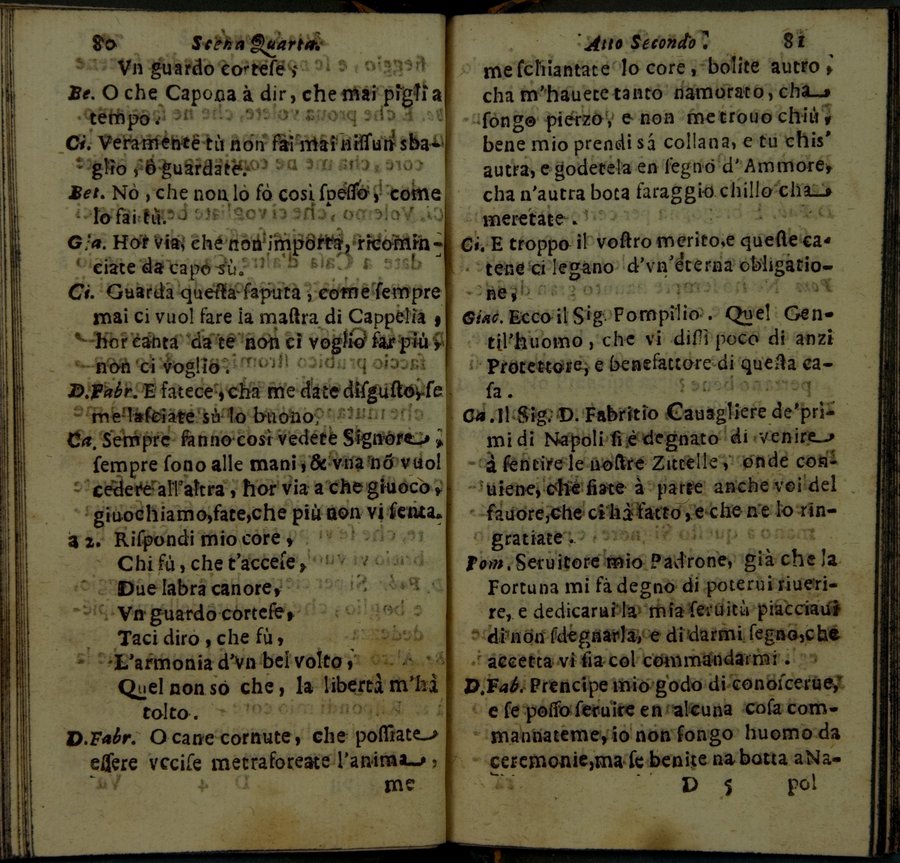 80 Scena Quarta.
Vn guardo corteſe,
Be. O che Capona à dir, che mai pigli a
tempo.
Ci. Veramente tù non fai mai niſſun sba-
glio, ò guardate.
Bet. Nò, che non lo fò così ſpeſſo, come
lo fai tù.
Gia. Hor via, che non'importa, ricomin-
ciate da capo sù.
Ci. Guarda queſta ſaputa, come ſempre
mai ci vuol fare la maſtra di Cappella,
hor canta da te non ci voglio far più,
non ci voglio.
D.Fabr. E fatece, cha me date diſguſto, ſe
me laſciate sù lo buono,
Ca. Sempre fanno così vedete Signore,
ſempre ſono alle mani, & vna nõ vuol
cedere all'altra, hor via a che giuoco,
giuochiamo, fate, che più non vi ſenta.
a 2. Riſpondi mio core,
Chi fù, che t'acceſe,
Due labra canore,
Vn guardo corteſe,
Taci diro, che fù,
L'armonia d'vn bel volto,
Quel non so che, la libertà m'hà
tolto.
D.Fabr. O cane cornute, che poſſiate
eſſere vcciſe metraforeate l'anima,
me
Atto Secondo. 81
me ſchiantate lo core, bolite autro,
cha m'hauete tanto namorato, cha
ſongo pierzo, e non me trouo chiù,
bene mio prendi sá collana, e tu chis'
autra, e godetela en ſegno d'Ammore,
cha n'autra bota faraggio chillo cha
meretate.
Ci. E troppo il voſtro merito, e queſte ca-
tene ci legano d'vn'eterna obligatio-
ne,
Giac. Ecco il Sig. Pompilio. Quel Gen-
til'huomo, che vi diſſi poco di anzi
Protettore, e benefattore di queſta ca-
ſa.
Ca. Il Sig. D. Fabritio Cauagliere de'pri-
mi di Napoli ſi è degnato di venire
à ſentire le noſtre Zittelle, onde con-
uiene, che ſiate à parte anche voi del
fauore, che ci hà fatto, e che ne lo rin-
gratiate.
Pom. Seruitore mio Padrone, già che la
Fortuna mi fà degno di poterui riueri-
re, e dedicarui la mia ſeruitù piacciaui
di non ſdegnarla, e di darmi ſegno, che
accetta vi ſia col commandarmi.
D.Fab. Prencipe mio godo di conoſcerue,
e ſe poſſo ſeruire en alcuna coſa com-
mannateme, io non ſongo huomo da
ceremonie, ma ſe benite na botta a Na-
D 5 pol